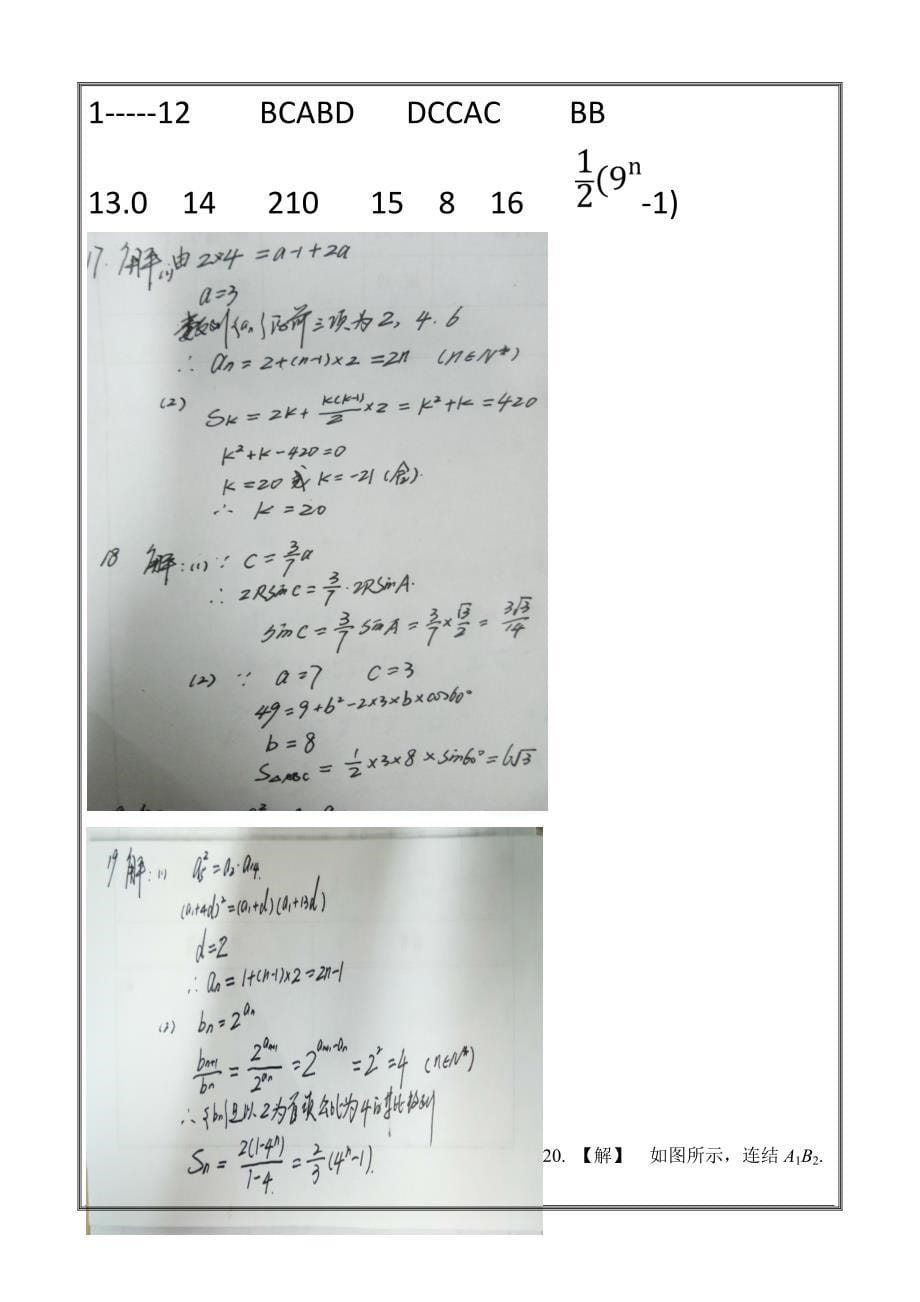 1-----12 BCABD DCCAC BB
13.0 14 210 15 8 16 1/2(9ⁿ-1)
17.解:(1)由2×4=a-1+2a
a=3
数列{aₙ}的前三项为2,4.6
∴ aₙ=2+(n-1)×2=2n (n∈N*)
(2) Sₖ=2k+k(k-1)/2×2=k²+k=420
k²+k-420=0
k=20或k=-21(舍).
∴ k=20
18 解:(1)∵ C=3/7a
∴ 2RsinC=3/7·2RsinA.
sinC=3/7sinA=3/7×√3/2=3√3/14
(2) ∵ a=7 C=3
49=9+b²-2×3×b×cos60°
b=8
S△ABC=1/2×3×8×sin60°=6√3
19解:(1) a₅²=a₂·a₁₄.
(a₁+4d)²=(a₁+d)(a₁+13d)
d=2
∴ aₙ=1+(n-1)×2=2n-1
(2) bₙ=2^(aₙ)
bₙ₊₁/bₙ=2^(aₙ₊₁)/2^(aₙ)=2^(aₙ₊₁-aₙ)=2²=4 (n∈N*)
∴{bₙ}是以2为首项公比为4的等比数列
Sₙ=2(1-4ⁿ)/(1-4)=2/3(4ⁿ-1).
20. 【解】 如图所示，连结A₁B₂.